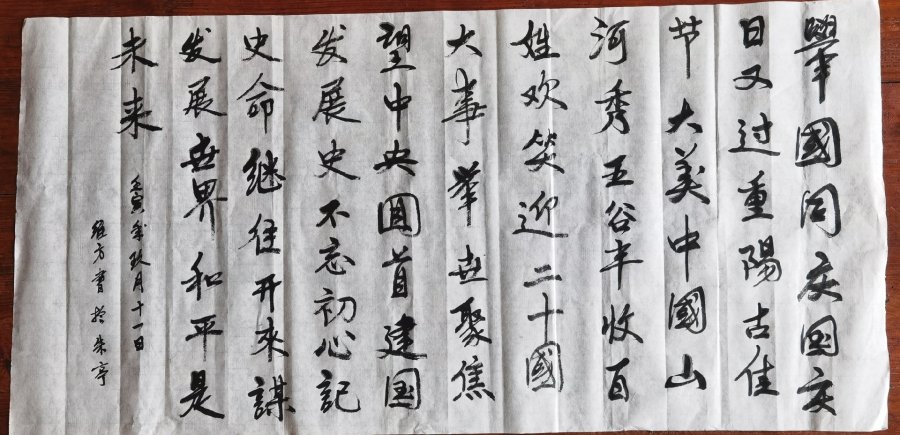 舉國同庆国庆
日又过重陽古佳
节大美中國山
河秀五谷丰收百
姓欢笑迎二十國
大事舉世聚焦
望中央圆首建国
发展史不忘初心記
史命继往开來謀
发展世界和平是
未来
壬寅年玖月十一日
方書於朱亭